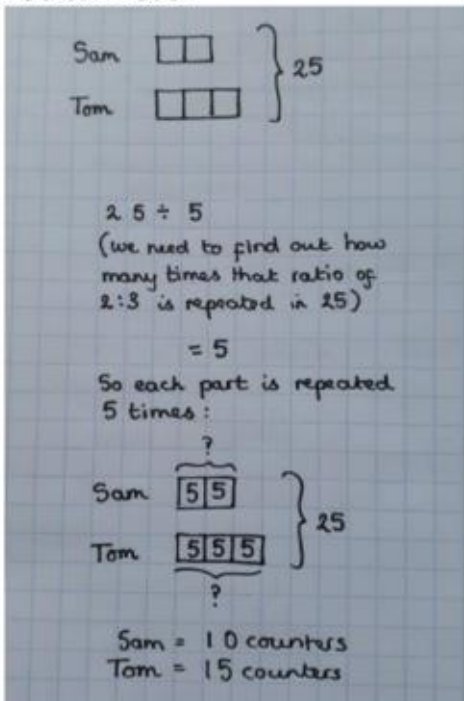 Sam 25
Tom
2 5 ÷ 5
(we need to find out how
many times that ratio of
2:3 is repeated in 25)
= 5
So each part is repeated
5 times :
?
Sam 5 5 25
Tom 5 5 5
?
Sam = 10 counters
Tom = 15 counters